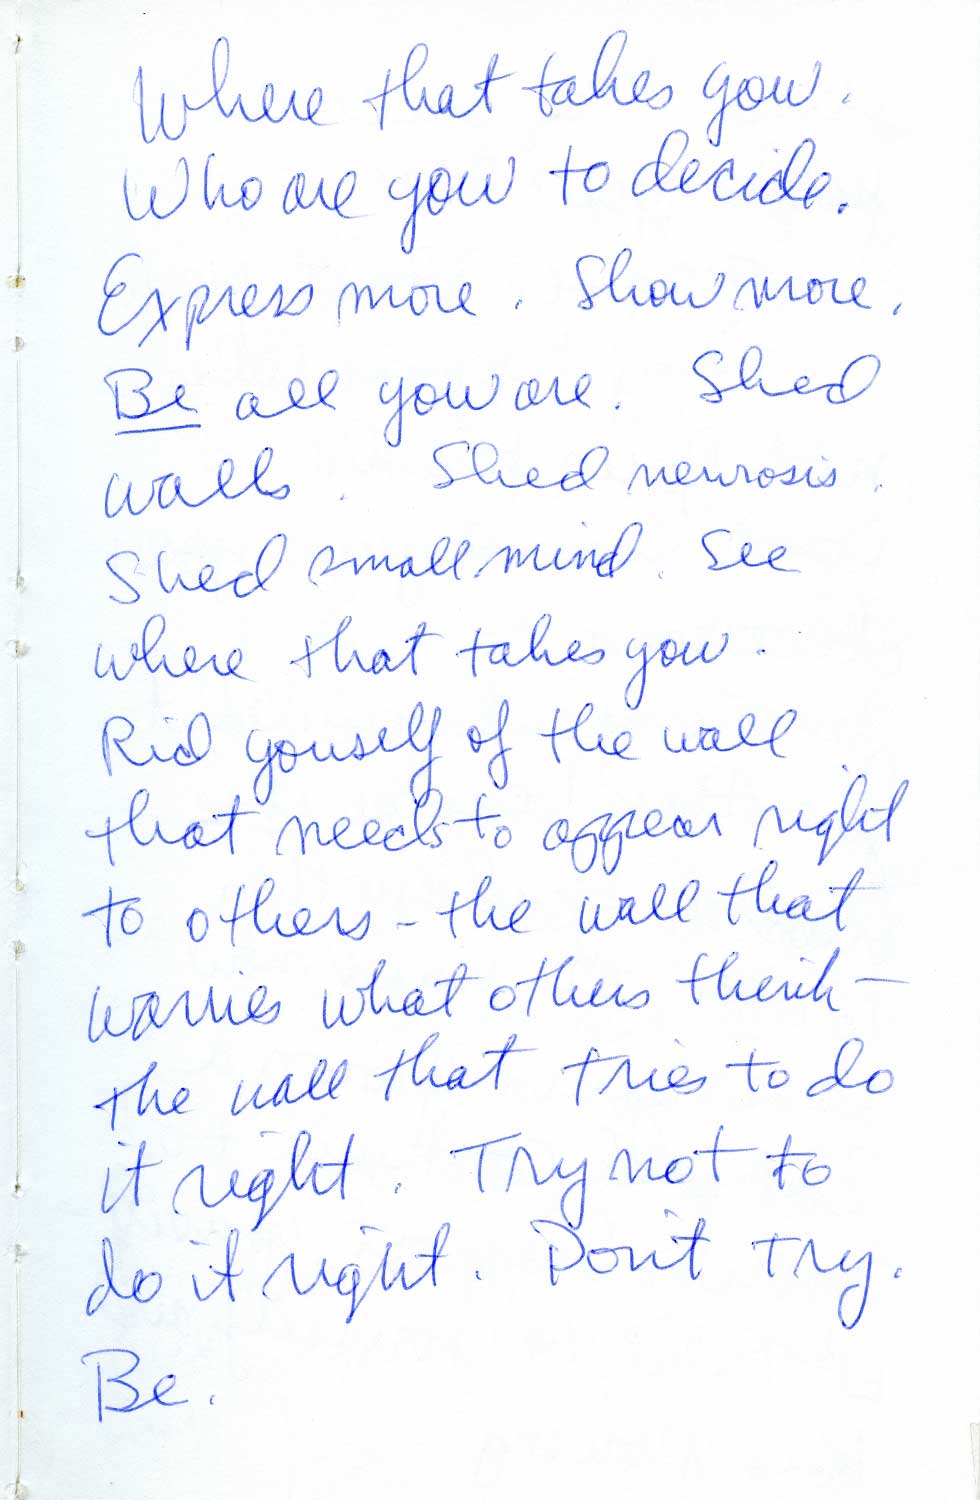 Where that takes you.
Who are you to decide.
Express more. Show more.
Be all you are. Shed
walls. Shed neurosis.
Shed small mind. See
where that takes you.
Rid yourself of the wall
that needs to appear right
to others - the wall that
worries what others think -
the wall that tries to do
it right. Try not to
do it right. Don't try.
Be.